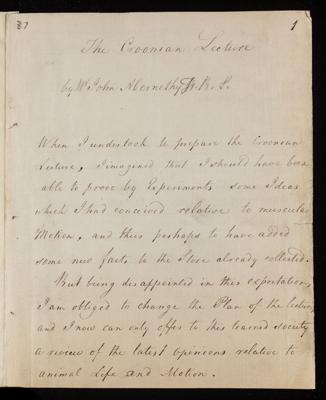 37
1
The Croonian Lecture
by Mr John Abernethy F.R.S.
When I undertook to prepare the Croonian
Lecture, I imagined that I should have been
able to prove by Experiments some Ideas
which I had conceived relative to muscular
Motion, and thus perhaps to have added
some new facts to the Store already collected.
But being disappointed in this expectation,
I am obliged to change the Plan of the lecture,
and I now can only offer to this learned society
a review of the latest opinions relative to
animal Life and Motion.